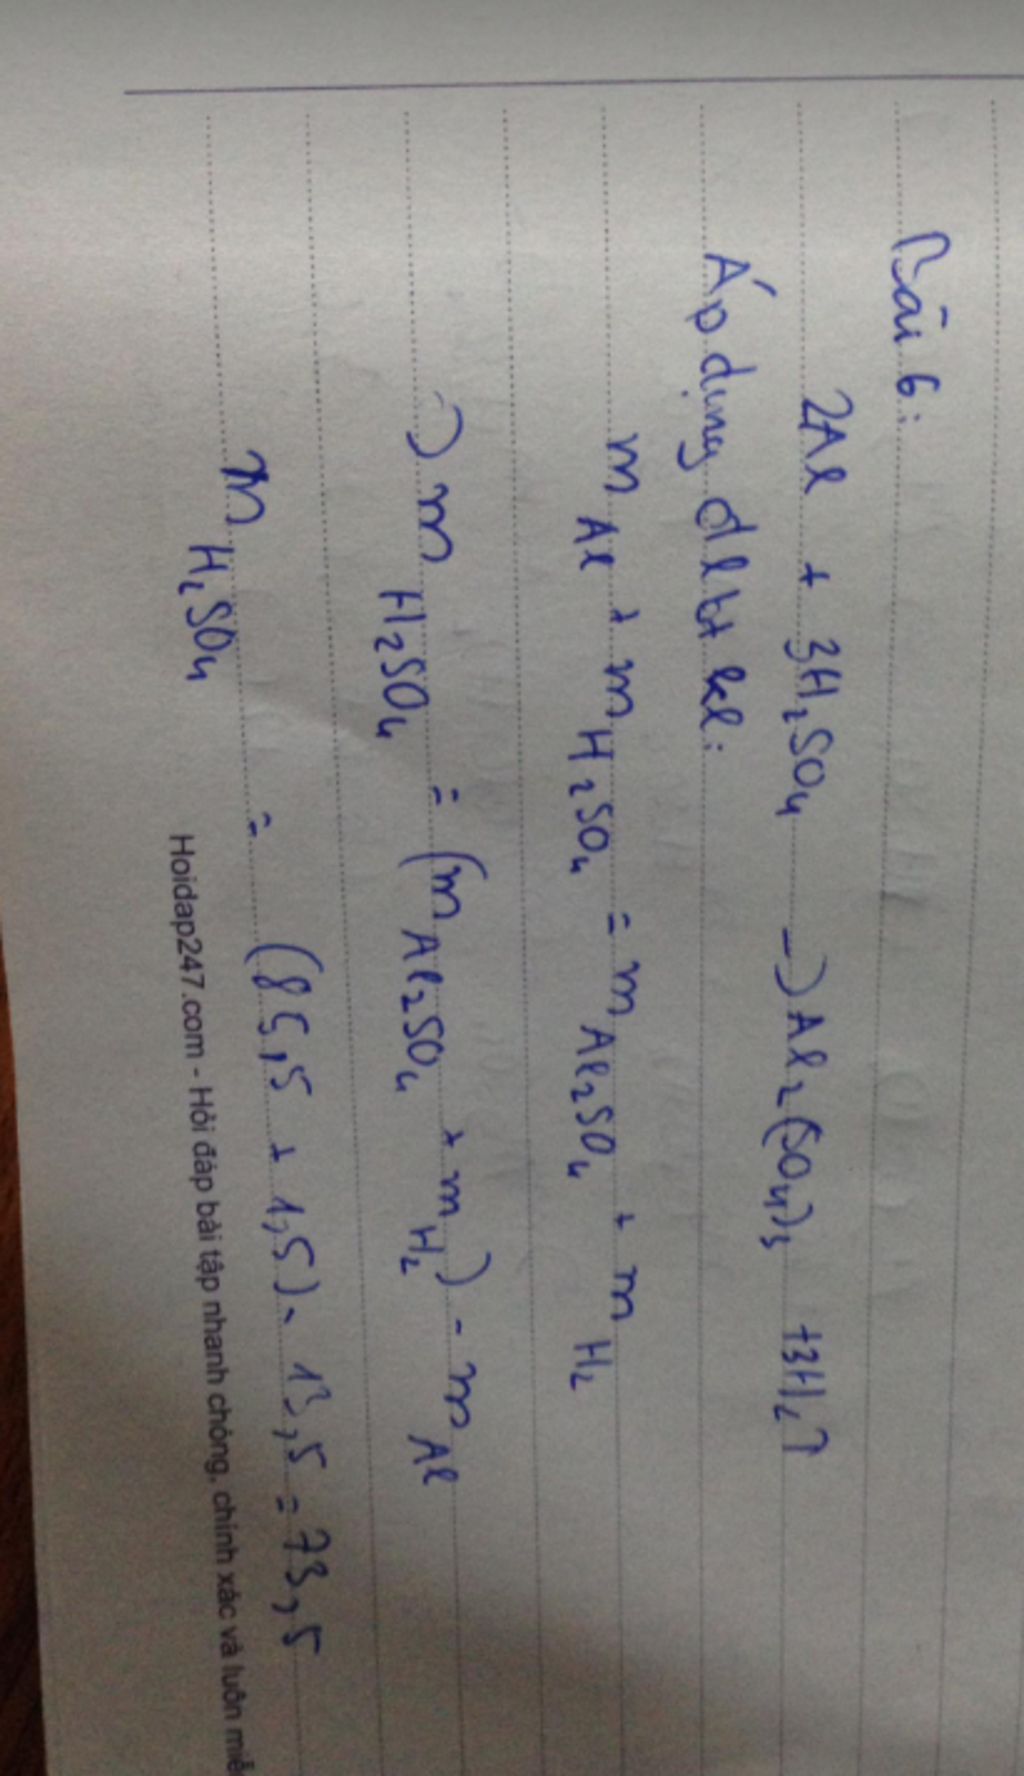 Bài 6:
2Al + 3H₂SO₄ -> Al₂(SO₄)₃ + 3H₂↑
Áp dụng đlbtkl:
m Al + m H₂SO₄ = m Al₂SO₄ + m H₂
=> m H₂SO₄ = (m Al₂SO₄ + m H₂) - m Al
m H₂SO₄ = (85,5 + 1,5) - 13,5 = 73,5
Hoidap247.com - Hỏi đáp bài tập nhanh chóng, chính xác và luôn miễ